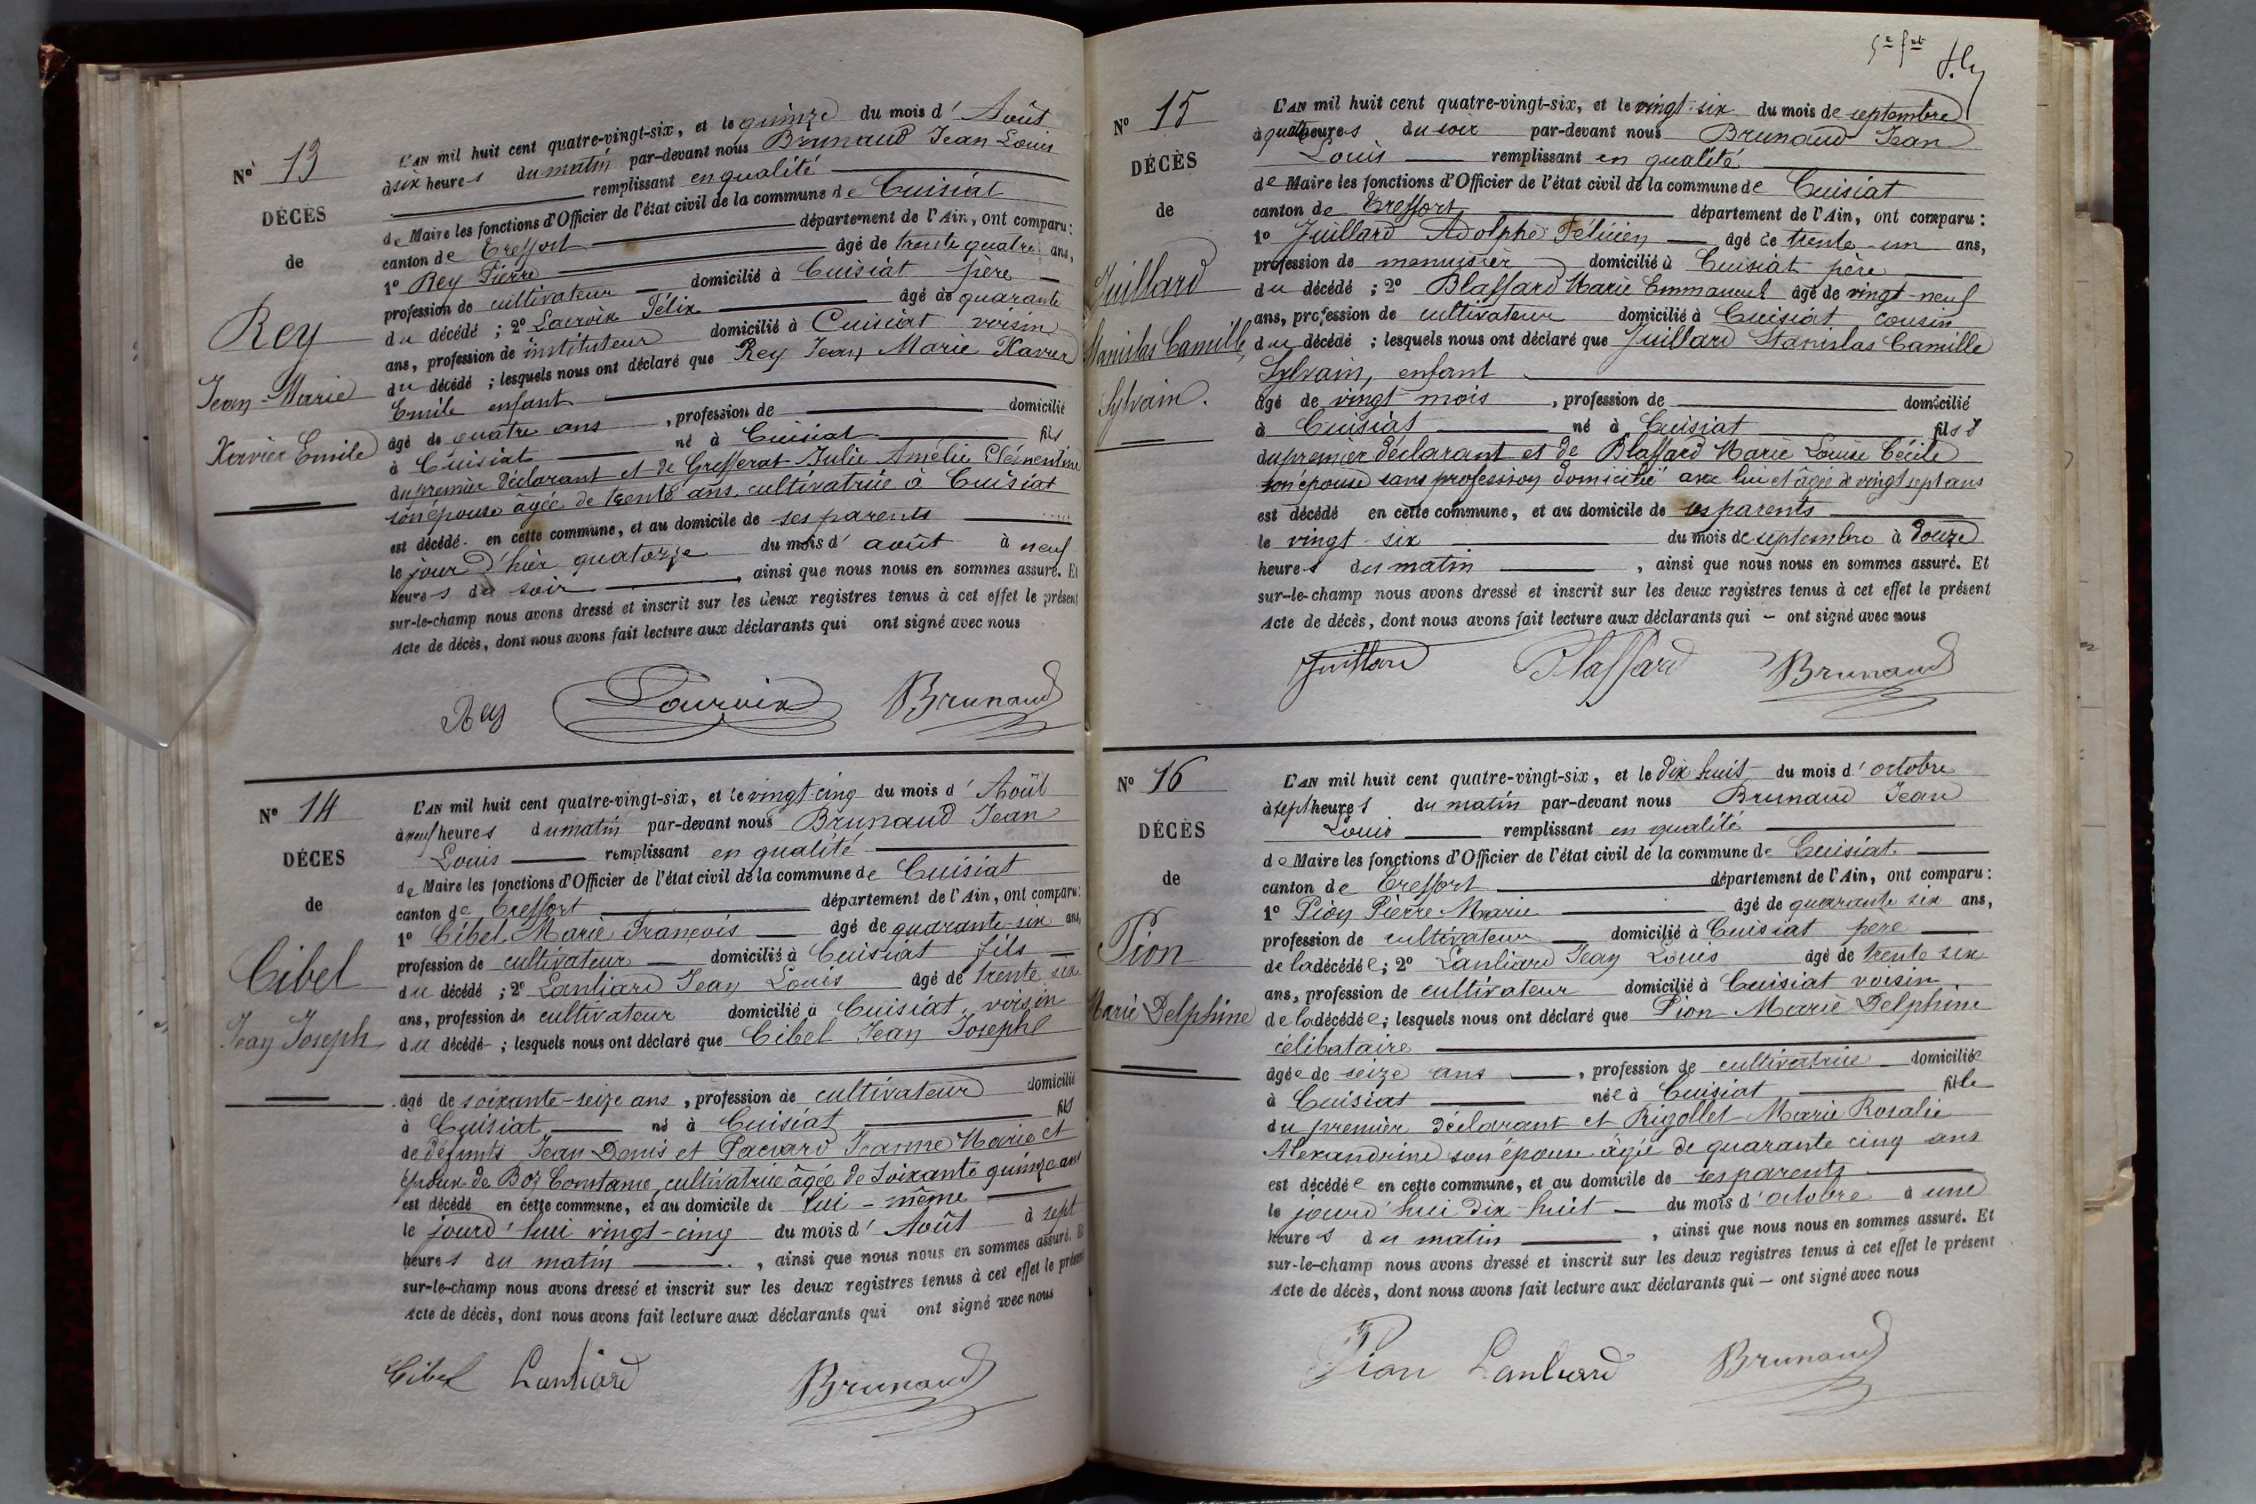 Nº 13
DÉCÈS
de
Rey
Jean-Marie
Xavier Emile
L'AN mil huit cent quatre-vingt-six, et le quinze du mois d'Août
à six heures du matin par-devant nous Brunaud Jean Louis
remplissant en qualité
de Maire les fonctions d'Officier de l'état civil de la commune de Cuisiat
canton de Treffort département de l'Ain, ont comparu:
1º Rey Pierre âgé de trente quatre ans,
profession de cultivateur domicilié à Cuisiat père
du décédé ; 2º Lacroix Félix âgé de quarante
ans, profession de instituteur domicilié à Cuisiat voisin
du décédé ; lesquels nous ont déclaré que Rey Jean Marie Xavier
Emile enfant
âgé de quatre ans , profession de domicilié
à Cuisiat né à Cuisiat fils
du premier déclarant et de Gresserat Julie Amélie Clémentine
son épouse âgée de trente ans, cultivatrice à Cuisiat
est décédé en cette commune, et au domicile de ses parents
le jour d'hier quatorze du mois d'août à neuf
heures du soir , ainsi que nous nous en sommes assuré. Et
sur-le-champ nous avons dressé et inscrit sur les deux registres tenus à cet effet le présent
Acte de décès, dont nous avons fait lecture aux déclarants qui ont signé avec nous
Rey Lacroix Brunaud
Nº 14
DÉCÈS
de
Cibel
Jean Joseph
L'AN mil huit cent quatre-vingt-six, et le vingt-cinq du mois d'Août
à neuf heures du matin par-devant nous Brunaud Jean
Louis remplissant en qualité
de Maire les fonctions d'Officier de l'état civil de la commune de Cuisiat
canton de Treffort département de l'Ain, ont comparu:
1º Cibel Marie François âgé de quarante-six ans,
profession de cultivateur domicilié à Cuisiat fils
du décédé ; 2º Lanliard Jean Louis âgé de trente six
ans, profession de cultivateur domicilié à Cuisiat voisin
du décédé ; lesquels nous ont déclaré que Cibel Jean Joseph
âgé de soixante-seize ans , profession de cultivateur domicilié
à Cuisiat né à Cuisiat fils
de défunts Jean Denis et Pacvard Jeanne Marie et
époux de Boz Constance, cultivatrice âgée de soixante quinze ans
est décédé en cette commune, et au domicile de lui-même
le jourd'hui vingt-cinq du mois d'Août à sept
heures du matin , ainsi que nous nous en sommes assuré. Et
sur-le-champ nous avons dressé et inscrit sur les deux registres tenus à cet effet le présent
Acte de décès, dont nous avons fait lecture aux déclarants qui ont signé avec nous
Cibel Lanliard Brunaud
Nº 15
DÉCÈS
de
Juillard
Stanislas Camille
Sylvain.
L'AN mil huit cent quatre-vingt-six, et le vingt-six du mois de septembre
à quatre heures du soir par-devant nous Brunaud Jean
Louis remplissant en qualité
de Maire les fonctions d'Officier de l'état civil de la commune de Cuisiat
canton de Treffort département de l'Ain, ont comparu:
1º Juillard Adolphe Félicien âgé de trente-un ans,
profession de menuisier domicilié à Cuisiat père
du décédé ; 2º Blassard Marie Emmanuel âgé de vingt-neuf
ans, profession de cultivateur domicilié à Cuisiat cousin
du décédé ; lesquels nous ont déclaré que Juillard Stanislas Camille
Sylvain, enfant
âgé de vingt mois , profession de domicilié
à Cuisiat né à Cuisiat fils
du premier déclarant et de Blassard Marie Louise Cécile
son épouse sans profession domicilié avec lui et âgée de vingt sept ans
est décédé en cette commune, et au domicile de ses parents
le vingt-six du mois de septembre à douze
heures du matin , ainsi que nous nous en sommes assuré. Et
sur-le-champ nous avons dressé et inscrit sur les deux registres tenus à cet effet le présent
Acte de décès, dont nous avons fait lecture aux déclarants qui — ont signé avec nous
Juillard Blassard Brunaud
Nº 16
DÉCÈS
de
Pion
Marie Delphine
L'AN mil huit cent quatre-vingt-six, et le dix huit du mois d'octobre
à sept heures du matin par-devant nous Brunaud Jean
Louis remplissant en qualité
de Maire les fonctions d'Officier de l'état civil de la commune de Cuisiat
canton de Treffort département de l'Ain, ont comparu:
1º Pion Pierre Marie âgé de quarante six ans,
profession de cultivateur domicilié à Cuisiat père
de la décédée ; 2º Lanliard Jean Louis âgé de trente six
ans, profession de cultivateur domicilié à Cuisiat voisin
de la décédée ; lesquels nous ont déclaré que Pion Marie Delphine
célibataire
âgée de seize ans , profession de cultivatrice domiciliée
à Cuisiat née à Cuisiat fille
du premier déclarant et Rigollet Marie Rosalie
Alexandrine son épouse âgée de quarante cinq ans
est décédée en cette commune, et au domicile de ses parents
le jourd'hui dix-huit du mois d'octobre à une
heures du matin , ainsi que nous nous en sommes assuré. Et
sur-le-champ nous avons dressé et inscrit sur les deux registres tenus à cet effet le présent
Acte de décès, dont nous avons fait lecture aux déclarants qui — ont signé avec nous
Pion Lanliard Brunaud